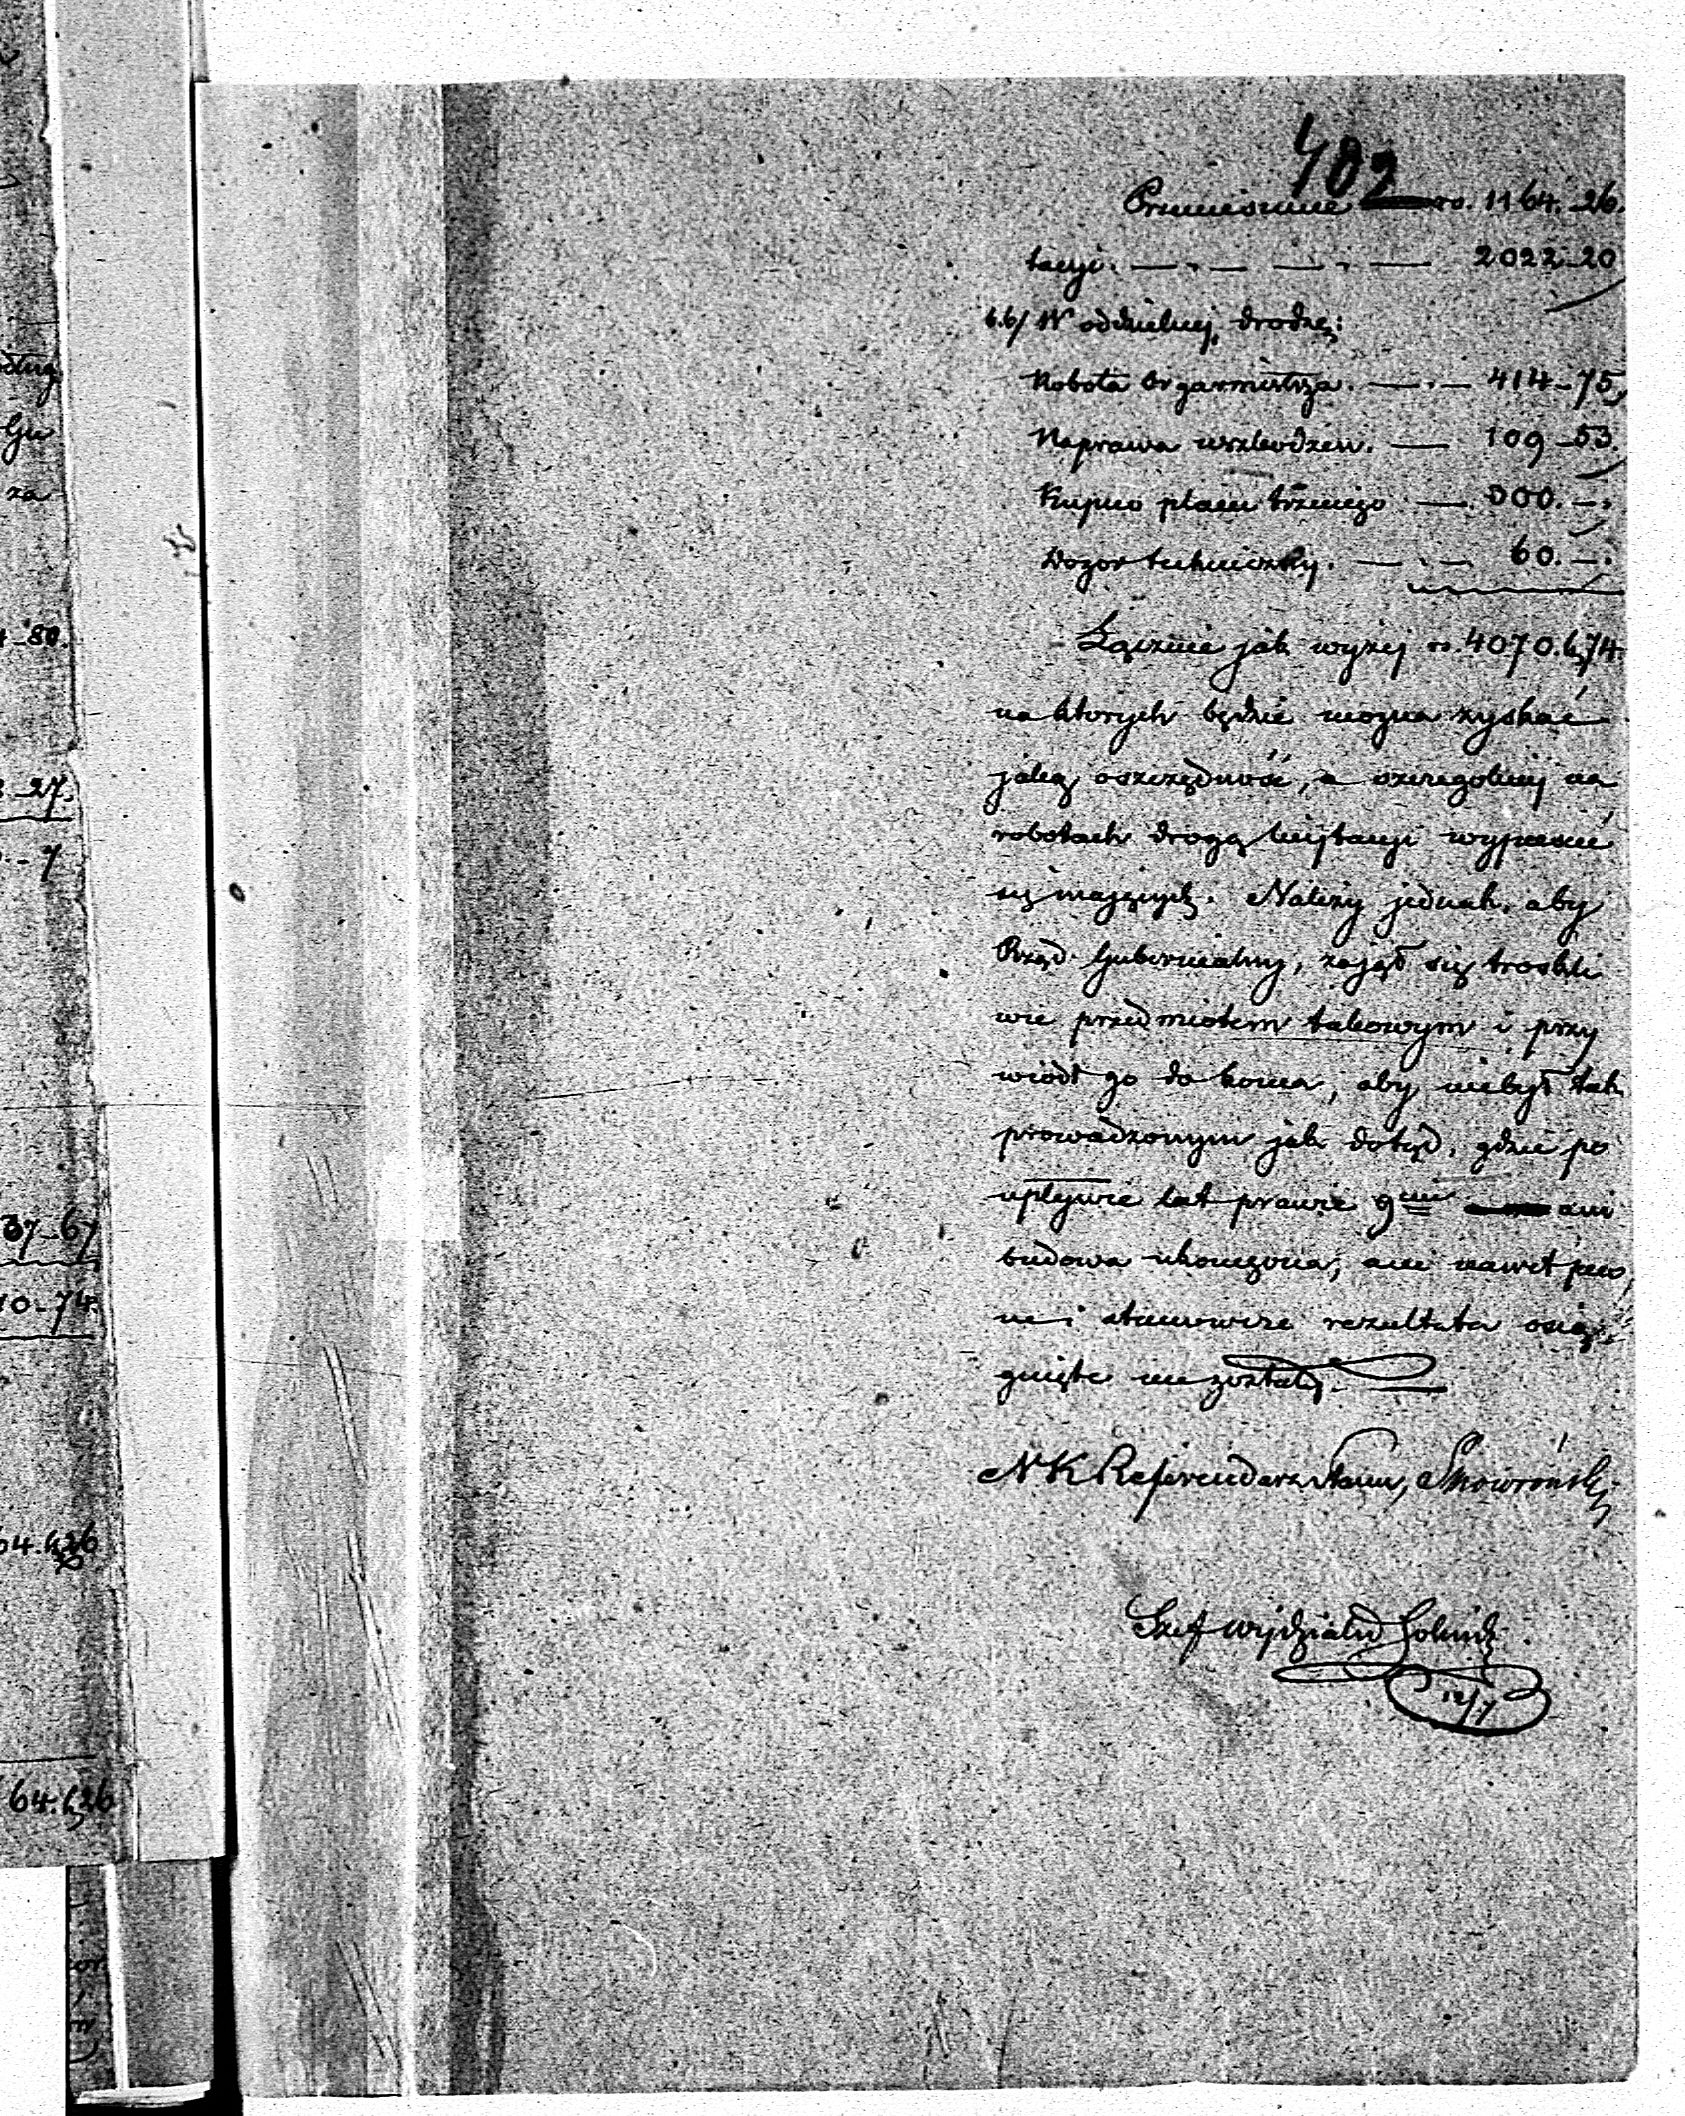 402
Przeniesienie rs. 1164.26.
tacyi. — " — — " — 2022_20
b.b/ W oddzielnej drodze:
Robota organmistrza. — " — 414_75
Naprawa uszkodzeń. — 109_53.
Kupno placu trzeciego — 300. —.
Dozór techniczny. — . — 60. —.
Łącznie jak wyżej rs. 4070.k.74
na ktorych będzie można zyskać
jaką oszczędność, a szczególniej na
robotach drogą licytacyi wypuścić
się mających. Należy jednak, aby
Rząd Gubernialny, zajął się troskli
wie przedmiotem takowym i przy
wiódł go do końca, aby niebył tak
prowadzonym jak dotąd, gdzie po
upływie lat prawie 9ciu ani
budowa ukończona, ani nawet pew
ne i stanowcze rezultata osią
gnięte nie zostały.
N K Referendarz Stanu, Skowroński
Szef Wydziału
12/7
ług
Gu
za
_80.
_27.
_7
37_67
70_74.
64.k.26
64.k.26